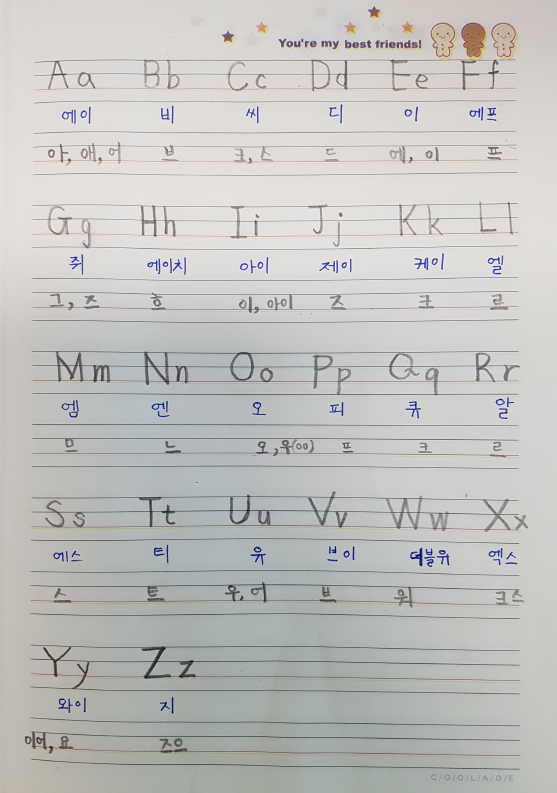 You're my best friends!
Aa Bb Cc Dd Ee Ff
에이 비 씨 디 이 에프
아, 애, 어 브 크, 스 드 에, 이 프
Gg Hh Ii Jj Kk Ll
쥐 에이치 아이 제이 케이 엘
그, 즈 흐 이, 아이 즈 크 르
Mm Nn Oo Pp Qq Rr
엠 엔 오 피 큐 알
므 느 오, 우(oo) 프 크 르
Ss Tt Uu Vv Ww Xx
에스 티 유 브이 더블유 엑스
스 트 우, 어 브 워 크스
Yy Zz
와이 지
이어, 요 즈으
C/O/O/L/A/G/E